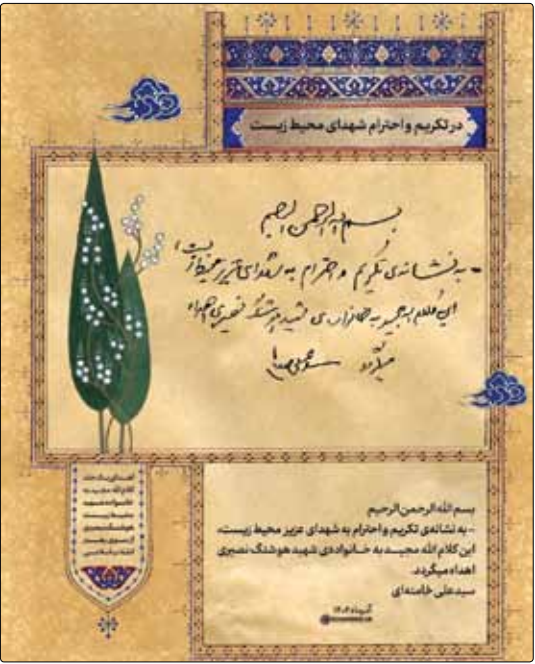 در تکریم و احترام شهدای محیط زیست
بسم الله الرحمن الرحیم
- به نشانه‌ی تکریم و احترام به شهدای عزیز محیط زیست،
این کلام الله مجید به خانواده‌ی شهید هوشنگ نصیری اهداء
میگردد
بسم الله الرحمن الرحیم
- به نشانه‌ی تکریم و احترام به شهدای عزیز محیط زیست،
این کلام الله مجید به خانواده‌ی شهید هوشنگ نصیری
اهداء میگردد.
سیدعلی خامنه‌ای